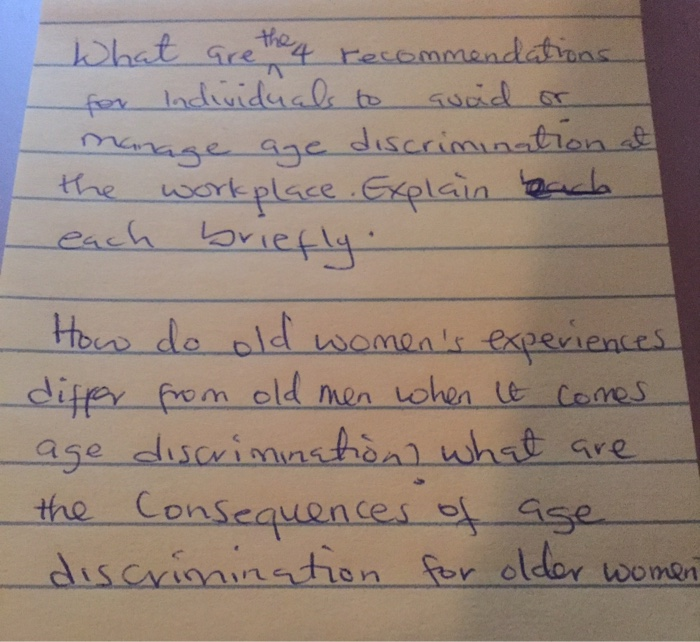 What are the 4 recommendations
for Individuals to avoid or
manage age discrimination at
the workplace. Explain
each briefly.
How do old women's experiences
differ from old men when it comes
age discrimination? what are
the Consequences of age
discrimination for older women